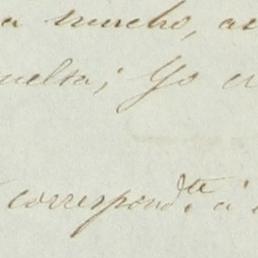 a mucho, a
uelta; Yo c
correspond.te á